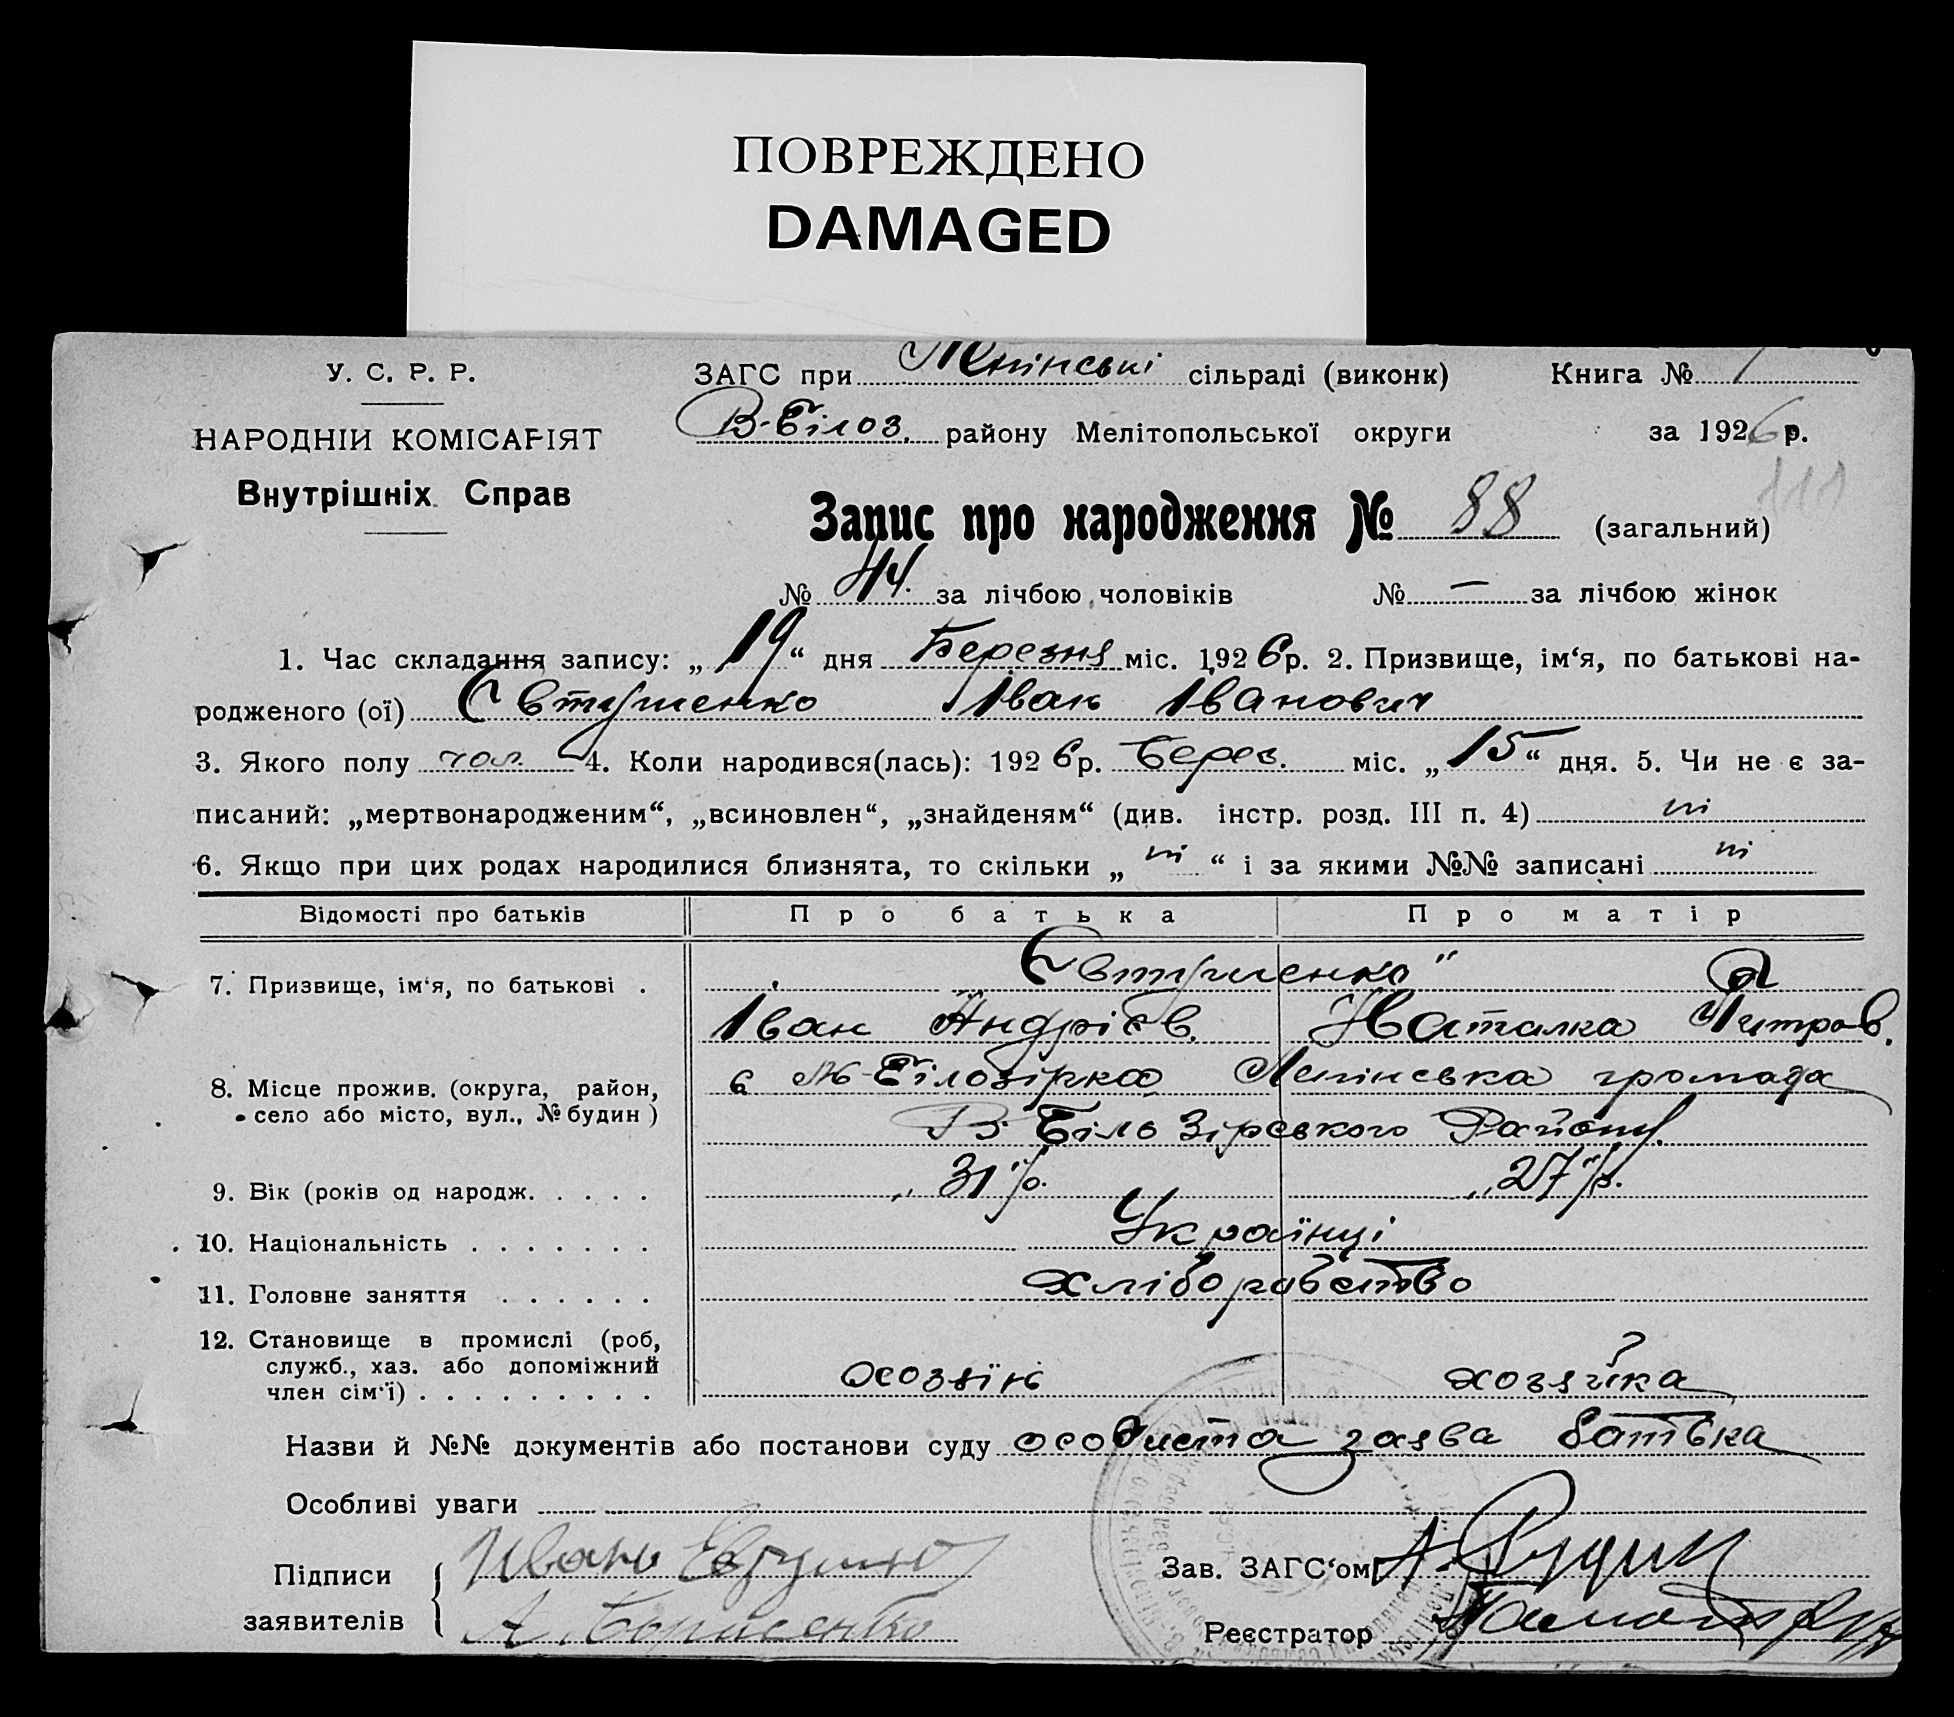 ПОВРЕЖДЕНО
DAMAGED
У. С. Р. Р.
НАРОДНІЙ КОМІСАРІЯТ
Внутрішніх Справ
ЗАГС при Ленінські сільраді (виконк) Книга № 1
В-Білоз. району Мелітопольської округи за 1926 р.
111
Запис про народження № 88 (загальний)
№ 44. за лічбою чоловіків № — за лічбою жінок
1. Час складання запису: „19“ дня Березня міс. 1926 р. 2. Призвище, ім‘я, по батькові на-
родженого (ої) Євтушенко Іван Іванович
3. Якого полу чол. 4. Коли народився(лась): 1926 р. Берез. міс. „15“ дня. 5. Чи не є за-
писаний: „мертвонародженим“, „всиновлен“, „знайденям“ (див. інстр. розд. III п. 4) ні
6. Якщо при цих родах народилися близнята, то скільки „ні“ і за якими №№ записані ні
Відомості про батьків Про батька Про матір
7. Призвище, ім‘я, по батькові . Євтушенко" а
Іван Андрієв. Наталка Петров.
8. Місце прожив. (округа, район, с М-Білозірка Ленінська громада
село або місто, вул., № будин) В. Білозірського Району.
9. Вік (років од народж. . . . . „31"р. „27"р.
10. Національність . . . . . . . Українці
11. Головне заняття . . . . . . хлiборобство
12. Становище в промислі (роб,
служб., хаз. або допоміжний
член сім‘ї) . . . . . . . . . хозяїн хозяйка
Назви й №№ документів або постанови суду особиста заява батька
Особливі уваги
Підписи Иван Зав. ЗАГС‘ом
заявителів А. Борисенко Реєстратор